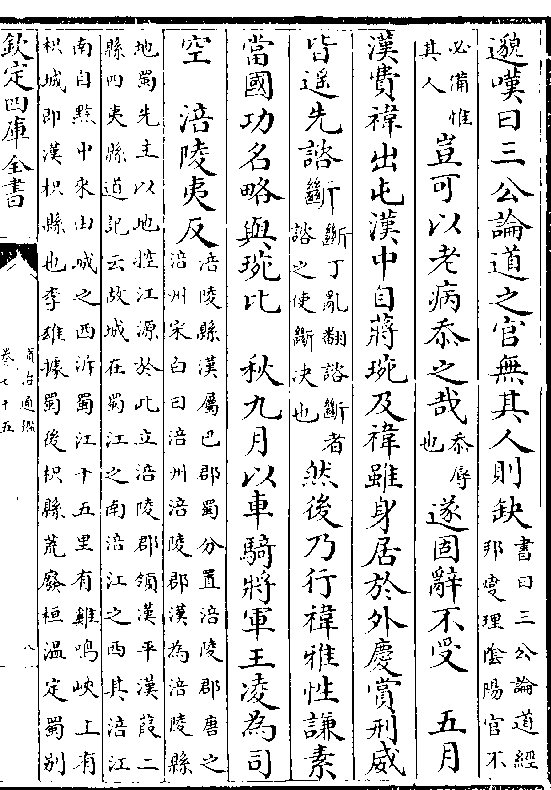 邈嘆曰三公論道之官無其人則缺書曰三公論道經
邦燮理隂陽官不
必備惟
其人豈可以老病忝之哉忝辱
也遂固辭不受　五月
漢費禕出屯漢中自蔣琬及禕雖身居於外慶賞刑威
皆遥先諮斷斷丁亂翻諮斷者
諮之使斷决也然後乃行禕雅性謙素
當國功名略與琬比　秋九月以車騎將軍王凌為司
空　涪陵夷反涪陵縣漢屬巴郡蜀分置涪陵郡唐之
涪州宋白曰涪州涪陵郡漢為涪陵縣
地蜀先主以地控江源於此立涪陵郡領漢平漢葭二
縣四夷縣道記云故城在蜀江之南涪江之西其涪江
南自黔中來由城之西泝蜀江十五里有雞鳴峽上有
枳城即漢枳縣也李雄據蜀後枳縣荒廢桓温定蜀别
欽定四庫全書
資治通鑑
卷七十五
八